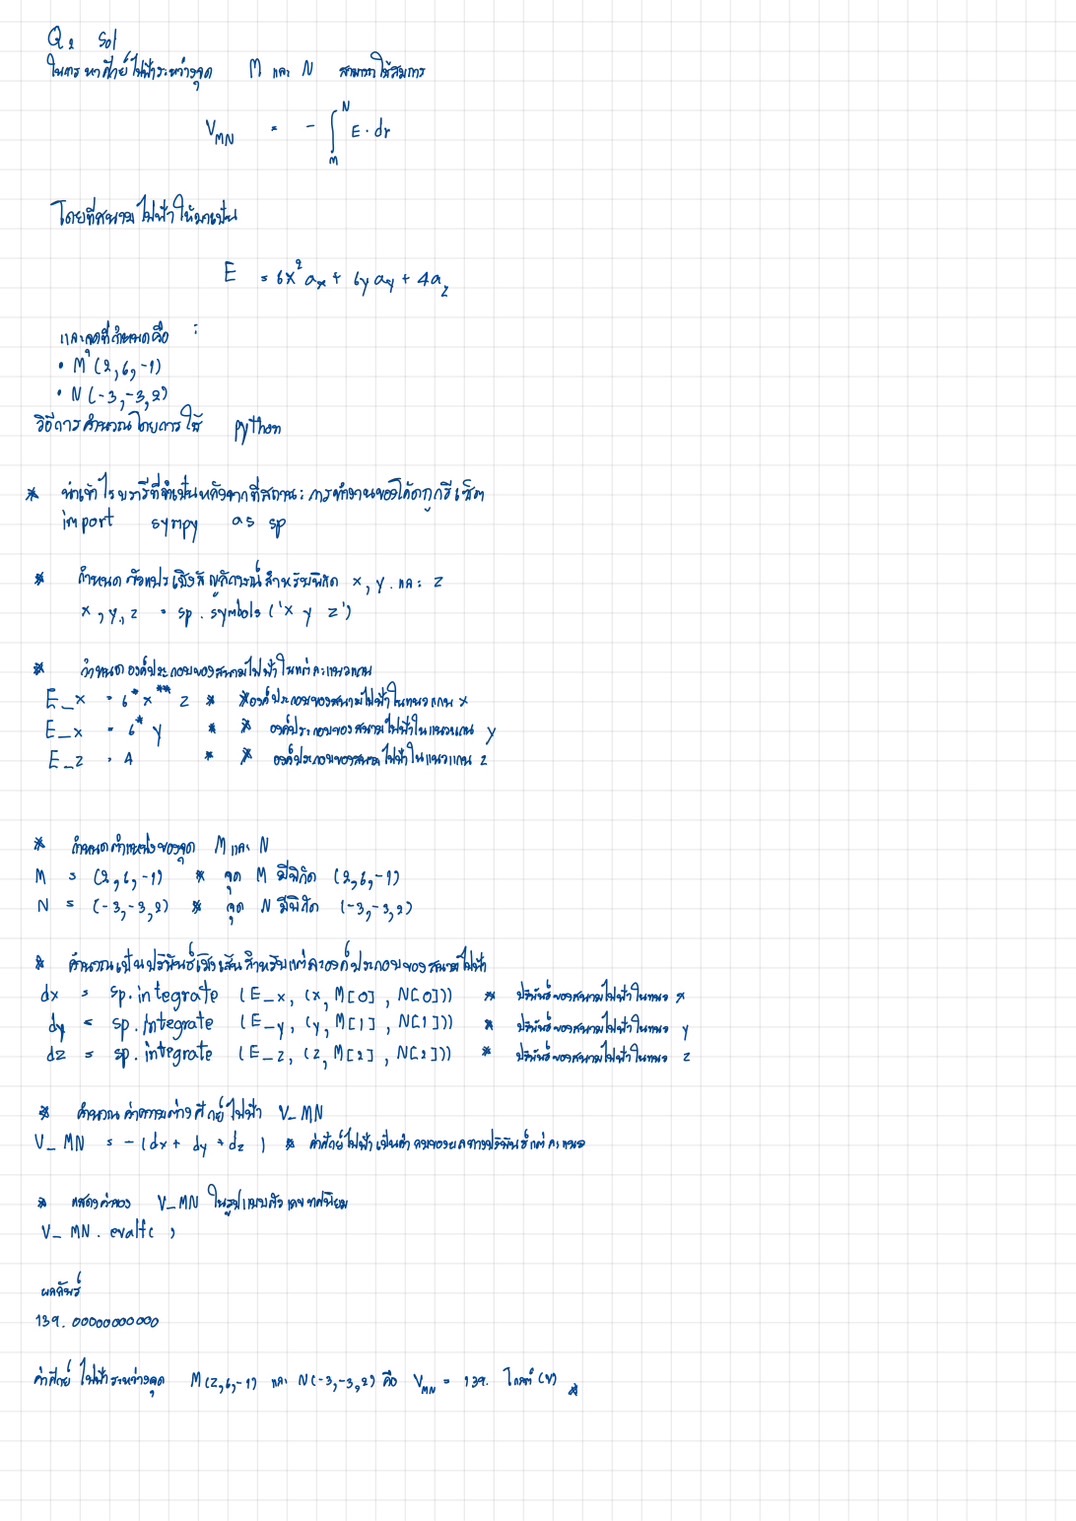 Q2 Sol
ในการหาศักย์ไฟฟ้าระหว่างจุด M และ N สามารถใช้สมการ
V_MN = - ∫_M^N E · dr
โดยที่สนามไฟฟ้าให้มาเป็น
E = 6x² ax + 6y ay + 4a_z
และจุดที่กำหนดคือ :
• M (2,6,-1)
• N (-3,-3,2)
วิธีการคำนวณโดยการใช้ python
* นำเข้าไรบรารีที่จำเป็นหลังจากที่สถานะการทำงานของโค้ดถูกรีเซ็ต
import sympy as sp
* กำหนดตัวแปรเชิงสัญลักษณ์สำหรับพิกัด x, y และ z
x, y, z = sp. symbols ('x y z')
* กำหนดองค์ประกอบของสนามไฟฟ้าในแต่ละแนวแกน
E_x = 6*x**2 * *องค์ประกอบของสนามไฟฟ้าในแนวแกน x
E_x = 6*y * * องค์ประกอบของสนามไฟฟ้าในแนวแกน y
E_z = 4 * * องค์ประกอบของสนามไฟฟ้าในแนวแกน z
* กำหนดตำแหน่งของจุด M และ N
M = (2,6,-1) * จุด M มีพิกัด (2,6,-1)
N = (-3,-3,2) * จุด N มีพิกัด (-3,-3,2)
* คำนวณเป็นปริพันธ์เชิงเส้นสำหรับแต่ละองค์ประกอบของสนามไฟฟ้า
dx = sp. integrate (E_x, (x, M[0], N[0])) * ปริพันธ์ของสนามไฟฟ้าในแนว x
dy = sp. integrate (E_y, (y, M[1], N[1])) * ปริพันธ์ของสนามไฟฟ้าในแนว y
dz = sp. integrate (E_z, (z, M[2], N[2])) * ปริพันธ์ของสนามไฟฟ้าในแนว z
* คำนวณค่าความต่างศักย์ไฟฟ้า V_MN
V_MN = - (dx + dy + dz ) * ค่าศักย์ไฟฟ้าเป็นค่าลบของผลรวมปริพันธ์แต่ละแนว
* แสดงค่าของ V_MN ในรูปแบบตัวเลขทศนิยม
V_MN. evalf( )
ผลลัพธ์
139.0000000000
ค่าศักย์ไฟฟ้าระหว่างจุด M(2,6,-1) และ N(-3,-3,2) คือ V_MN = 139. โวลต์ (V)